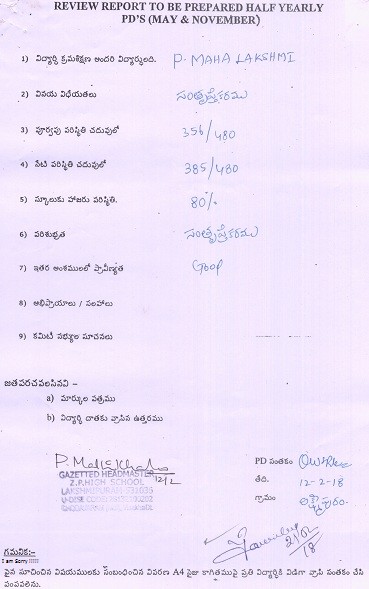 REVIEW REPORT TO BE PREPARED HALF YEARLY
PD'S (MAY & NOVEMBER)
1) విద్యార్థి క్రమశిక్షణ అందరి విద్యార్థులది. P. MAHA LAKSHMI
2) వినయ విధేయతలు సంతృప్తికరము
3) పూర్వపు పరిస్థితి చదువులో 356/480
4) నేటి పరిస్థితి చదువులో 385/480
5) స్కూలుకు హాజరు పరిస్థితి. 80%
6) పరిశుభ్రత సంతృప్తికరము
7) ఇతర అంశములలో ప్రావీణ్యత Good
8) అభిప్రాయాలు / సలహాలు
9) కమిటీ సభ్యుల సూచనలు
జతపరచవలసినవి -
a) మార్కుల పత్రము
b) విద్యార్థి దాతకు వ్రాసిన ఉత్తరము
12/2
GAZETTED HEADMASTER
Z.P.HIGH SCHOOL
PD సంతకం
తేది. 12-2-18
గ్రామం లక్ష్మీపురం.
21/02/18
గమనిక:-
I am Sorry !!!!!
పైన సూచించిన విషయములకు సంబంధించిన వివరణ A4 సైజు కాగితముపై ప్రతి విద్యార్థికి విడిగా వ్రాసి సంతకం చేసి
పంపవలెను.